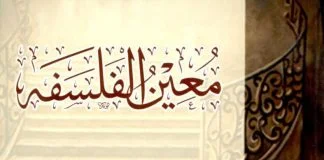 مُعِينُ الفَلسَفَه